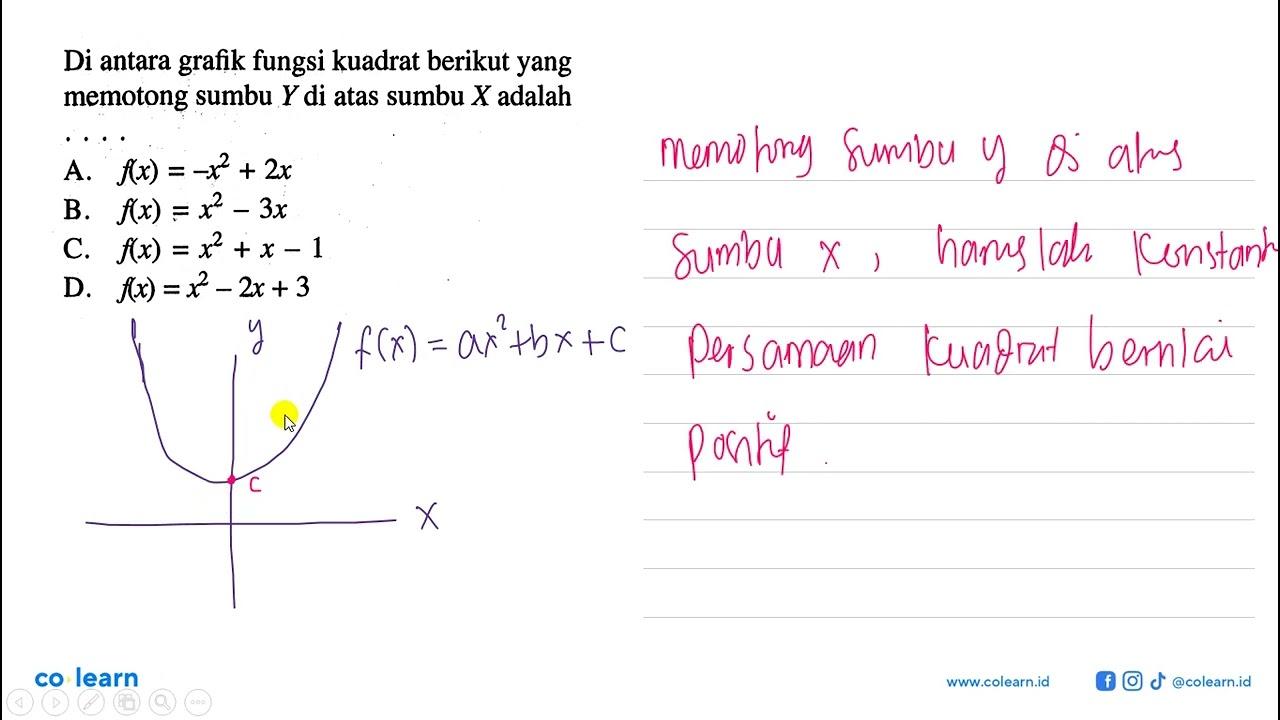 Di antara grafik fungsi kuadrat berikut yang
memotong sumbu Y di atas sumbu X adalah
. . . .
A. f(x) = –x² + 2x
B. f(x) = x² – 3x
C. f(x) = x² + x – 1
D. f(x) = x² – 2x + 3
y
f(x) = ax² + bx + c
c
x
memotong sumbu y di atas
sumbu x, haruslah konstanta
persamaan kuadrat bernilai
positif.
co learn
www.colearn.id
@colearn.id